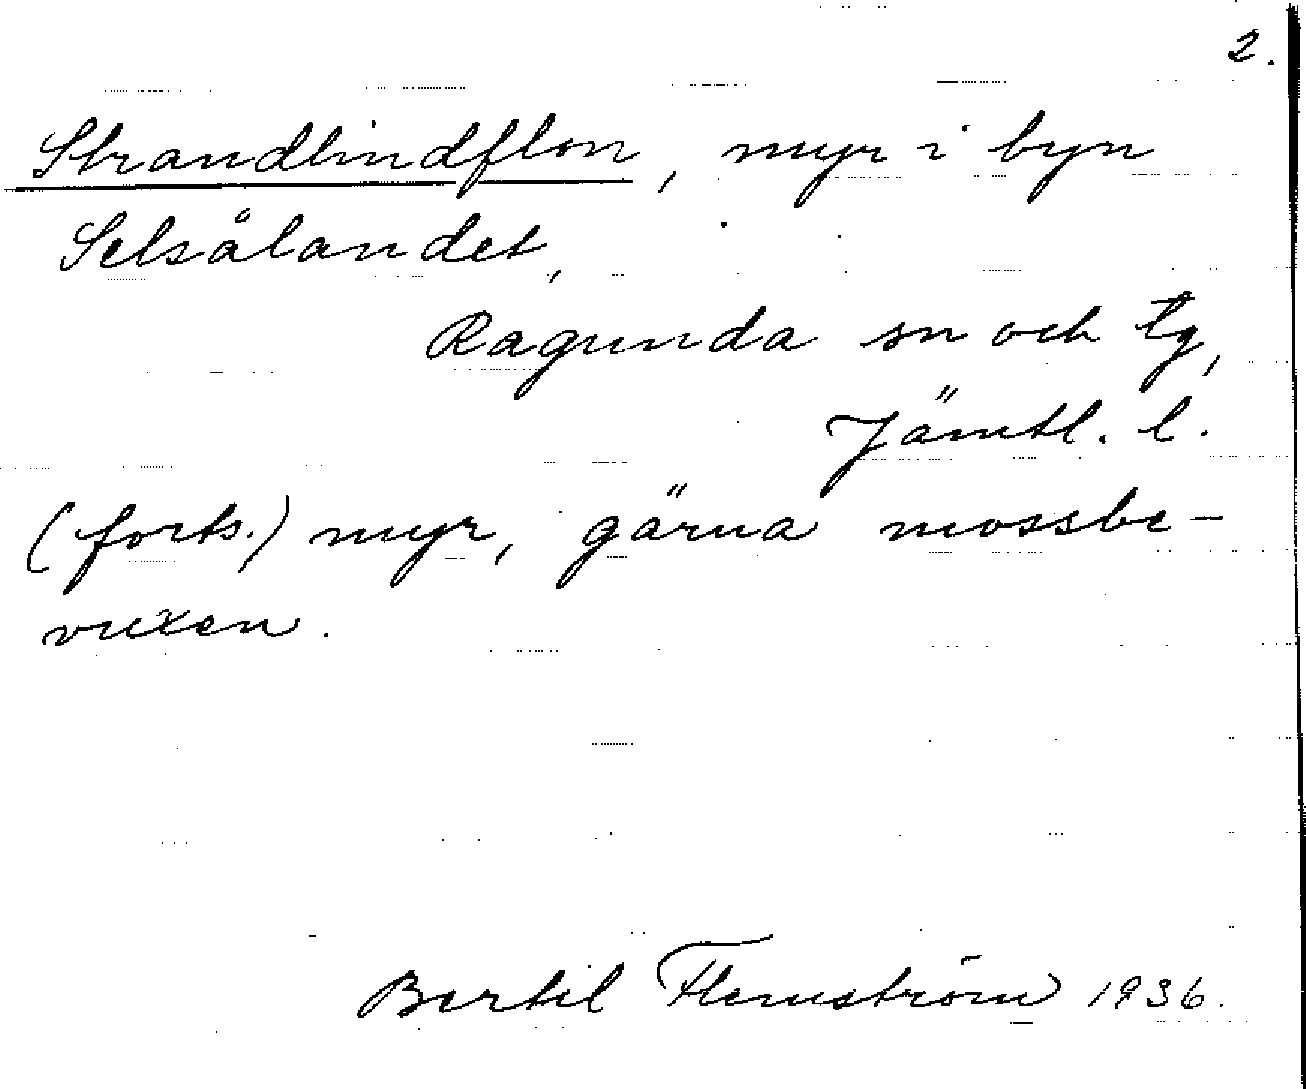 2.
Strandlindflon, myr i byn
Selsålandet,
Ragunda sn och tg,
Jämtl. l.
(forts.) myr, gärna mossbe-
vuxen.
Bertil Flemström 1936.